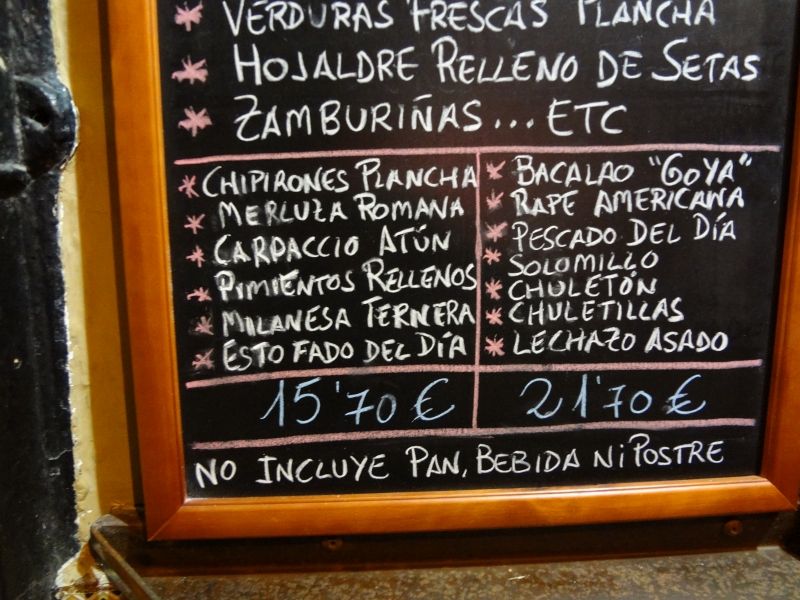 * VERDURAS FRESCAS PLANCHA
* HOJALDRE RELLENO DE SETAS
* ZAMBURIÑAS... ETC
* CHIPIRONES PLANCHA
* MERLUZA ROMANA
* CARPACCIO ATÚN
* PIMIENTOS RELLENOS
* MILANESA TERNERA
* ESTOFADO DEL DÍA
15'70 €
* BACALAO "GOYA"
* RAPE AMERICANA
* PESCADO DEL DÍA
* SOLOMILLO
* CHULETÓN
* CHULETILLAS
* LECHAZO ASADO
21'70 €
NO INCLUYE PAN, BEBIDA NI POSTRE